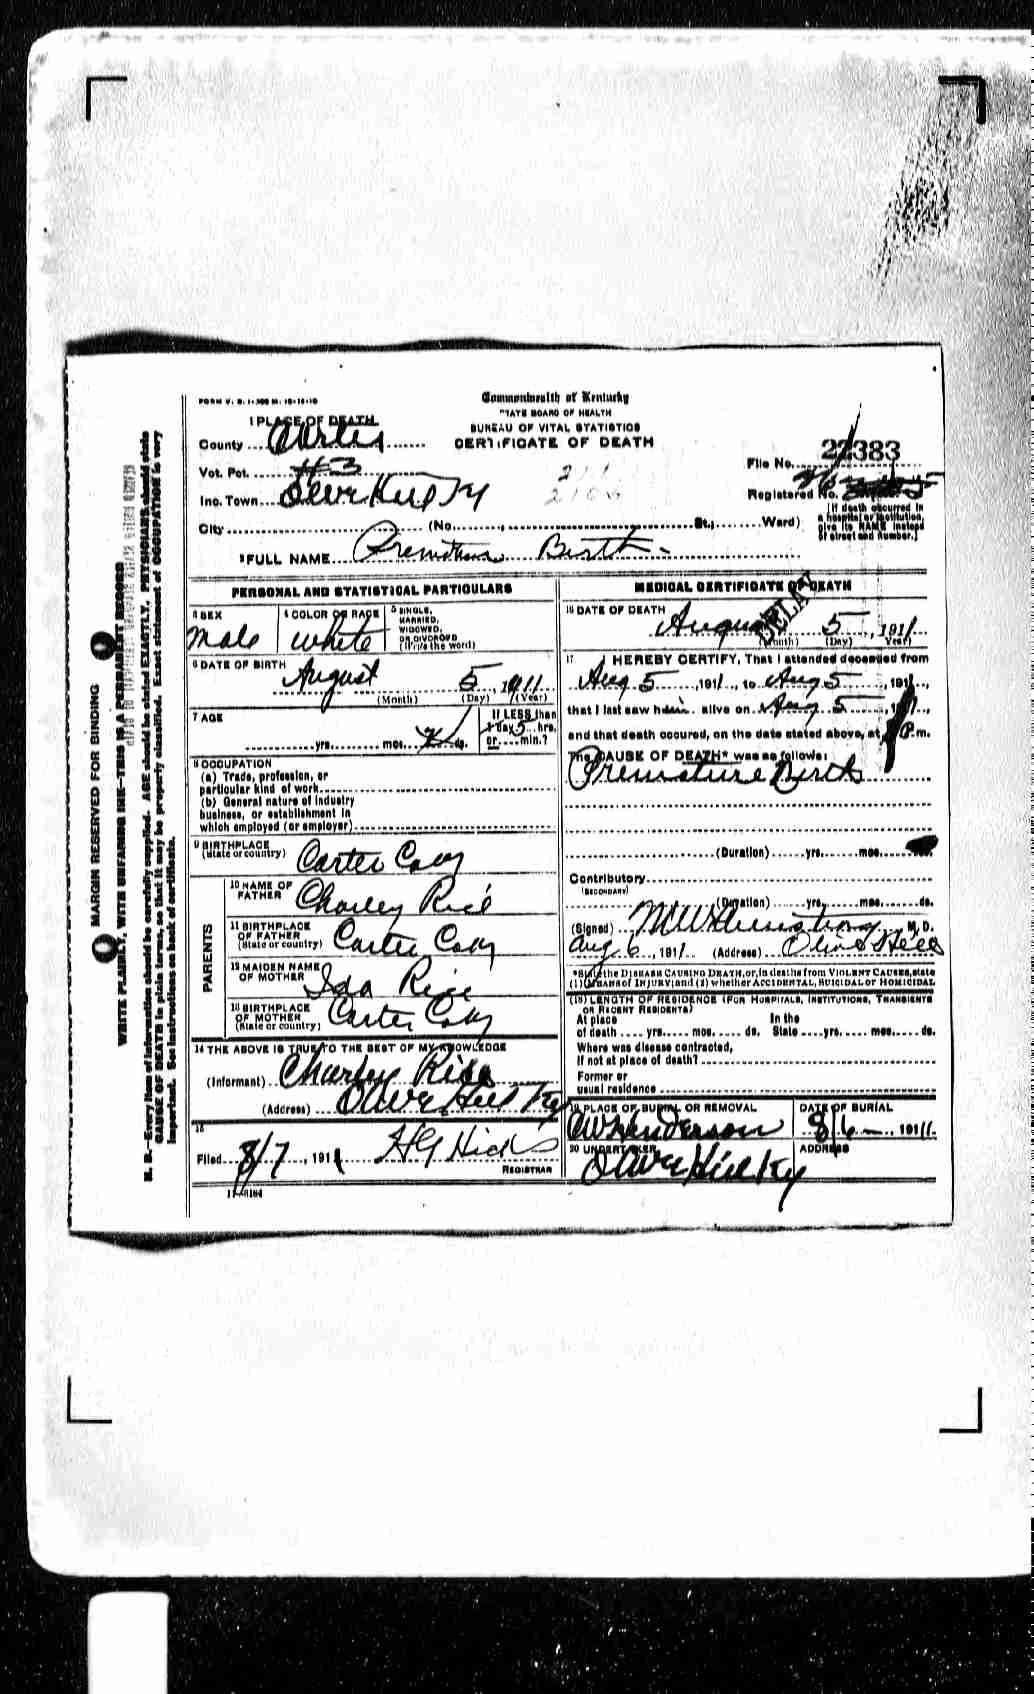 FORM V. S. 1-500 M. 12-13-10
Commonwealth of Kentucky
STATE BOARD OF HEALTH
BUREAU OF VITAL STATISTICS
CERTIFICATE OF DEATH
1 PLACE OF DEATH
County Carter
Vot. Pct. #3
Inc. Town Olive Hill Ky
City (No. St.; Ward)
File No. 22383
Registered No.
[If death occurred in a hospital or institution, give its NAME instead of street and number.]
2 FULL NAME Premature Birth
PERSONAL AND STATISTICAL PARTICULARS
3 SEX
Male
4 COLOR OR RACE
White
5 SINGLE, MARRIED, WIDOWED, OR DIVORCED (Write the word)
6 DATE OF BIRTH
August 5, 1911
(Month) (Day) (Year)
7 AGE
yrs. mos. ds.
If LESS than 1 day 5 hrs. or min.?
8 OCCUPATION
(a) Trade, profession, or
particular kind of work
(b) General nature of industry
business, or establishment in
which employed (or employer)
9 BIRTHPLACE
(State or country) Carter Coky
PARENTS
10 NAME OF FATHER Charley Rice
11 BIRTHPLACE OF FATHER (State or country) Carter Coky
12 MAIDEN NAME OF MOTHER Ida Rice
13 BIRTHPLACE OF MOTHER (State or country) Carter Coky
14 THE ABOVE IS TRUE TO THE BEST OF MY KNOWLEDGE
(Informant) Charley Rice
(Address) Olive Hill Ky
15
Filed 8/7, 1911 H G Hicks
REGISTRAR
11-3184
MEDICAL CERTIFICATE OF DEATH
DELAY
16 DATE OF DEATH
August 5, 1911
(Month) (Day) (Year)
17 I HEREBY CERTIFY, That I attended deceased from
Aug 5, 1911, to Aug 5, 1911,
that I last saw him alive on Aug 5, 1911,
and that death occured, on the date stated above, at P.m.
The CAUSE OF DEATH* was as follows:
Premature Birth
(Duration) yrs. mos.
Contributory
(SECONDARY)
(Duration) yrs. mos. ds.
(Signed) M W Armstrong, M. D.
Aug 6, 1911 (Address) Olive Hill
*State the DISEASE CAUSING DEATH, or, in deaths from VIOLENT CAUSES, state
(1) MEANS of INJURY; and (2) whether ACCIDENTAL, SUICIDAL or HOMICIDAL
(18) LENGTH OF RESIDENCE (FOR HOSPITALS, INSTITUTIONS, TRANSIENTS
OR RECENT RESIDENTS)
At place In the
of death yrs. mos. ds. State yrs. mos. ds.
Where was disease contracted,
If not at place of death?
Former or
usual residence
19 PLACE OF BURIAL OR REMOVAL
DATE OF BURIAL
AW Henderson 8/6, 1911
20 UNDERTAKER
ADDRESS
Olive Hill Ky
MARGIN RESERVED FOR BINDING
WRITE PLAINLY, WITH UNFADING INK—THIS IS A PERMANENT RECORD
N. B.—Every item of information should be carefully supplied. AGE should be stated EXACTLY. PHYSICIANS should state
CAUSE OF DEATH in plain terms, so that it may be properly classified. Exact statement of OCCUPATION is very
important. See instructions on back of certificate.